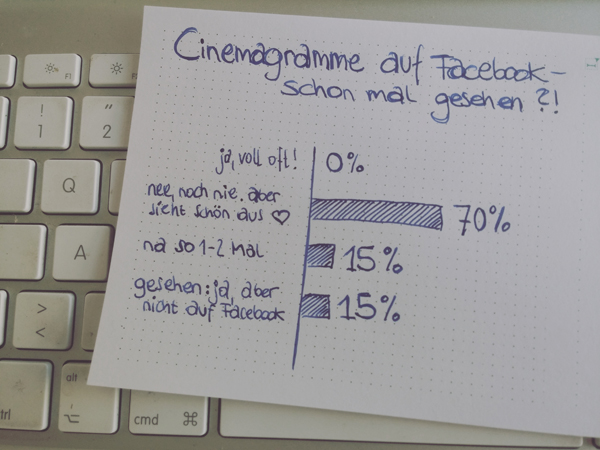 Cinemagramme auf Facebook-
schon mal gesehen ?!
ja, voll oft! 0%
nee, noch nie. aber
sieht schön aus ♡ 70%
na so 1-2 Mal 15%
gesehen: ja, aber
nicht auf Facebook 15%
F1
! 1
" 2
Q
A
> <
alt
ctrl
cmd ⌘